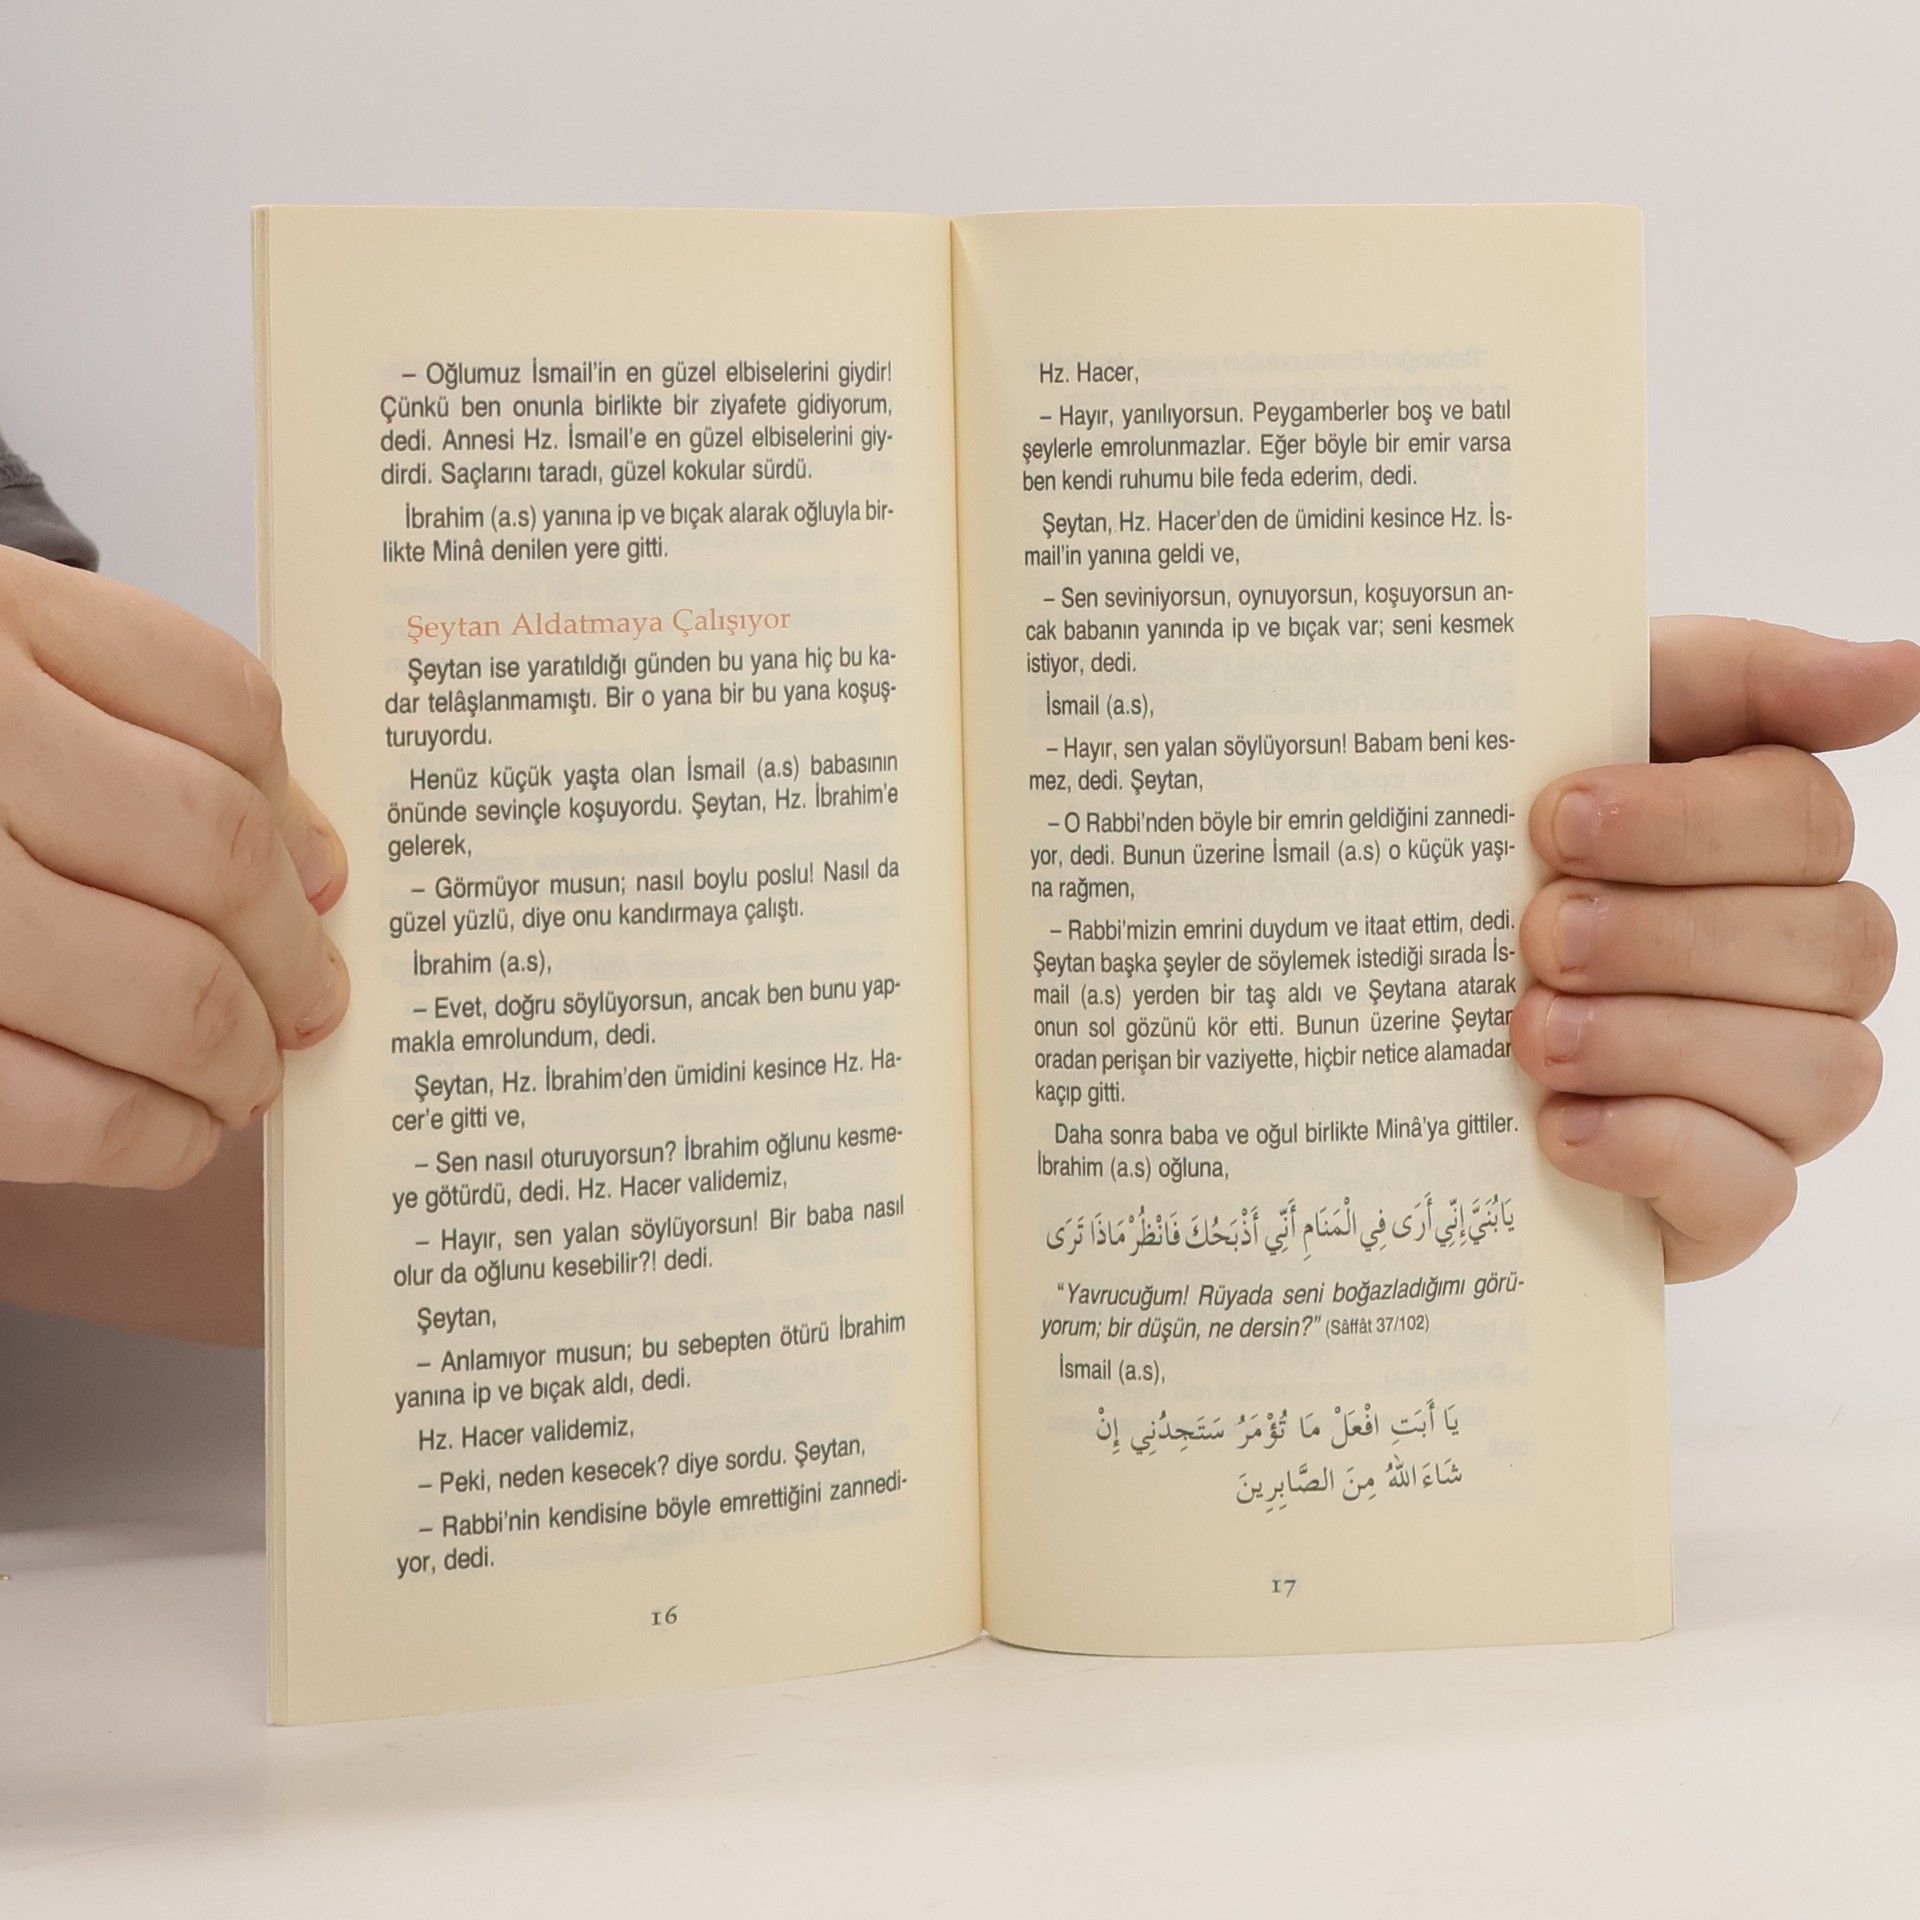 – Oğlumuz İsmail'in en güzel elbiselerini giydir!
Çünkü ben onunla birlikte bir ziyafete gidiyorum,
dedi. Annesi Hz. İsmail'e en güzel elbiselerini giy-
dirdi. Saçlarını taradı, güzel kokular sürdü.
İbrahim (a.s) yanına ip ve bıçak alarak oğluyla bir-
likte Minâ denilen yere gitti.
Şeytan Aldatmaya Çalışıyor
Şeytan ise yaratıldığı günden bu yana hiç bu ka-
dar telâşlanmamıştı. Bir o yana bir bu yana koşuş-
turuyordu.
Henüz küçük yaşta olan İsmail (a.s) babasının
önünde sevinçle koşuyordu. Şeytan, Hz. İbrahim'e
gelerek,
– Görmüyor musun; nasıl boylu poslu! Nasıl da
güzel yüzlü, diye onu kandırmaya çalıştı.
İbrahim (a.s),
– Evet, doğru söylüyorsun, ancak ben bunu yap-
makla emrolundum, dedi.
Şeytan, Hz. İbrahim'den ümidini kesince Hz. Ha-
cer'e gitti ve,
– Sen nasıl oturuyorsun? İbrahim oğlunu kesme-
ye götürdü, dedi. Hz. Hacer validemiz,
– Hayır, sen yalan söylüyorsun! Bir baba nasıl
olur da oğlunu kesebilir?! dedi.
Şeytan,
– Anlamıyor musun; bu sebepten ötürü İbrahim
yanına ip ve bıçak aldı, dedi.
Hz. Hacer validemiz,
– Peki, neden kesecek? diye sordu. Şeytan,
– Rabbi'nin kendisine böyle emrettiğini zannedi-
yor, dedi.
16
Hz. Hacer,
– Hayır, yanılıyorsun. Peygamberler boş ve batıl
şeylerle emrolunmazlar. Eğer böyle bir emir varsa
ben kendi ruhumu bile feda ederim, dedi.
Şeytan, Hz. Hacer'den de ümidini kesince Hz. İs-
mail'in yanına geldi ve,
– Sen seviniyorsun, oynuyorsun, koşuyorsun an-
cak babanın yanında ip ve bıçak var; seni kesmek
istiyor, dedi.
İsmail (a.s),
– Hayır, sen yalan söylüyorsun! Babam beni kes-
mez, dedi. Şeytan,
– O Rabbi'nden böyle bir emrin geldiğini zannedi-
yor, dedi. Bunun üzerine İsmail (a.s) o küçük yaşı-
na rağmen,
– Rabbi'mizin emrini duydum ve itaat ettim, dedi.
Şeytan başka şeyler de söylemek istediği sırada İs-
mail (a.s) yerden bir taş aldı ve Şeytana atarak
onun sol gözünü kör etti. Bunun üzerine Şeytan
oradan perişan bir vaziyette, hiçbir netice alamadan
kaçıp gitti.
Daha sonra baba ve oğul birlikte Minâ'ya gittiler.
İbrahim (a.s) oğluna,
يَابُنَيَّ إِنِّي أَرَى فِي الْمَنَامِ أَنِّي أَذْبَحُكَ فَانْظُرْ مَاذَا تَرَى
“Yavrucuğum! Rüyada seni boğazladığımı görü-
yorum; bir düşün, ne dersin?” (Sâffât 37/102)
İsmail (a.s),
يَا أَبَتِ افْعَلْ مَا تُؤْمَرُ سَتَجِدُنِي إِنْ
شَاءَ اللهُ مِنَ الصَّابِرِينَ
17